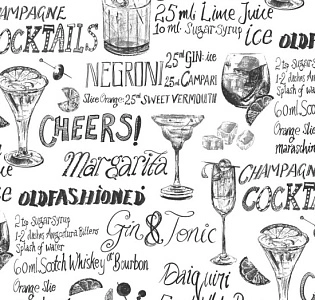 CHAMPAGNE
COCKTAILS
25 ml Lime Juice
10 ml Sugar Syrup
ice
OLDF
NEGRONI
25ml GIN ice
25ml CAMPARI
Slice Orange 25ml SWEET VERMOUTH
2 tsp Sugar
1-2 dashes
Splash of wat
60ml Scot
Orange slic
maraschin
CHEERS!
Margarita
CHAMPAGN
COCKT
OLDFASHIONED
ice
2 tsp Sugar Syrup
1-2 dashes Angostura Bitters
Splash of water
60ml Scotch Whiskey or Bourbon
Orange slice
Gin & Tonic
Daiquiri